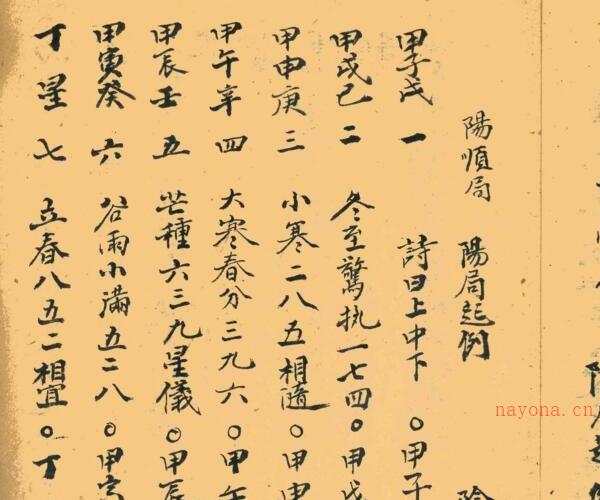 陽順局　陽局起例
甲子戊　一　詩曰上中下○甲子
甲戌己　二　冬至驚执一七四○甲戌
甲申庚　三　小寒二八五相隨○甲申
甲午辛　四　大寒春分三九六○甲午
甲辰壬　五　芒種六三九星儀○甲辰
甲寅癸　六　谷雨小滿五二八○甲寅
丁星　七　立春八五二相宜○丁
nayona.cn